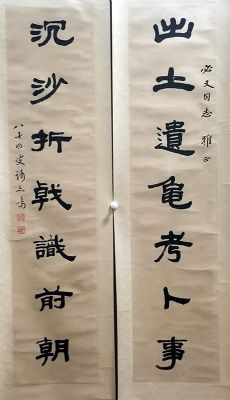 必文同志 雅正
出土遺龜考卜事
沉沙折戟識前朝
八十四叟